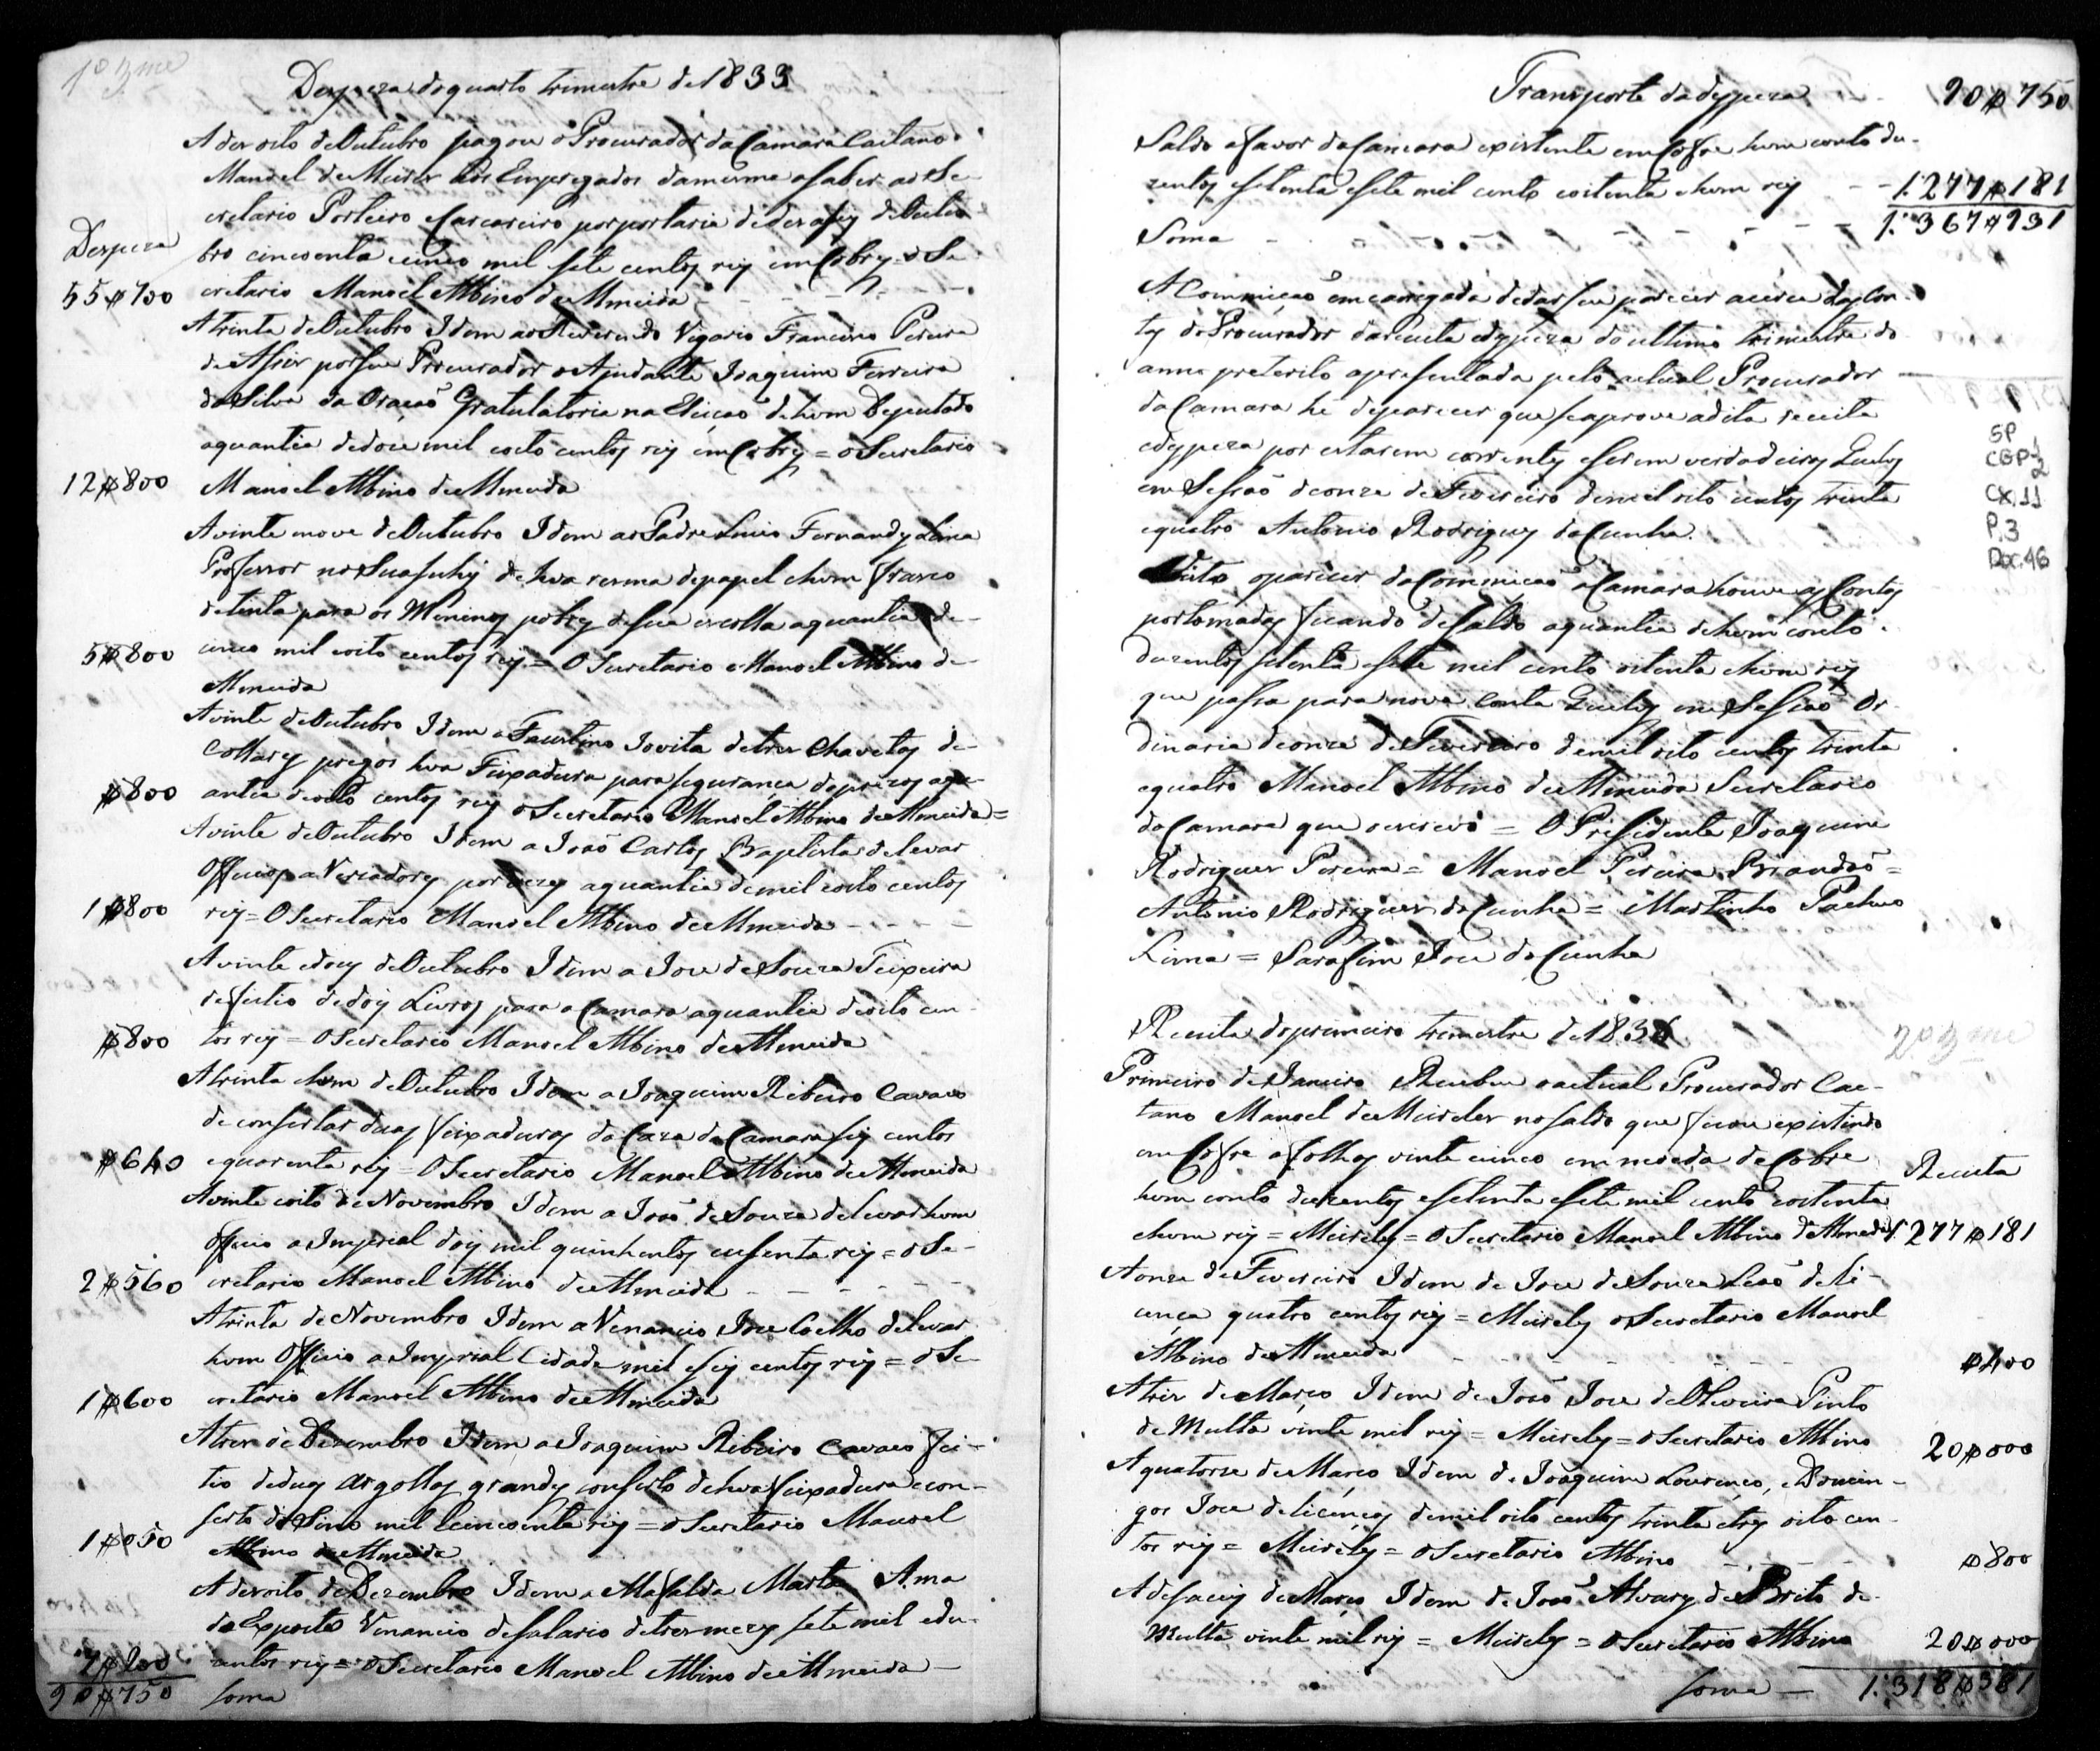 1º 3me
Despeza do quarto trimestre de 1833
A dezoito de Outubro pagou o Procurador da Camara Caetano
Manoel de Meireles aos Empregados da mesma a saber ao Se-
cretario Porteiro e Carcereiro por portaria de dezaseis de Outu-
Despeza
bro cincoenta e cinco mil sete centos reis em Cobres = o Se-
55$700 cretario Manoel Albino de Almeida
A trinta de Outubro Idem ao Reverendo Vigario Francisco Pereira
de Assis por seu Procurador o Ajudante Joaquim Ferreira
da Silva da Oração Gratulatoria na Eleição de hum Deputado
aquantia de doze mil e oito centos reis em Cobres = o Secretario
12$800 Manoel Albino de Almeida
A vinte e nove de Outubro Idem ao Padre Luis Fernandes Lima
Professor no Suasuhy de hua resma de papel e hum frasco
de tinta para os Meninos pobres de sua escolla aquantia de
5$800 cinco mil e oito centos reis = O Secretario Manoel Albino de
Almeida
A vinte de Outubro Idem a Faustino Jovita de tres Chavetas de
Collares pregos hua Feixadura para segurança de prezos aqu-
$800 antia de oito centos reis o Secretario Manoel Albino de Almeida =
A vinte de Outubro Idem a João Carlos Baptista de levar
Officios a Veriadores por vezes aquantia de mil e oito centos
1$800 reis = O Secretario Manoel Albino de Almeida
A vinte e dous de Outubro Idem a Joze de Souza Teixeira
de feitio de dois Livros para a Camara aquantia de oito cen-
$800 tos reis = O Secretario Manoel Albino de Almeida
A trinta e hum de Outubro Idem a Joaquim Ribeiro Cavaco
de consertar duas feixaduras da Caza da Camara seis centos
$640 e quarenta reis = O Secretario Manoel Albino de Almeida
A vinte e oito de Novembro Idem a João de Souza de levar hum
Officio a Imperial dois mil quinhentos e sesenta reis = o Se-
2$560 cretario Manoel Albino de Almeida
A trinta de Novembro Idem a Venancio Joze Coelho de levar
hum Officio a Imperial Cidade mil e seis centos reis = o Se-
1$600 cretario Manoel Albino de Almeida
A tres de Dezembro Idem a Joaquim Ribeiro Cavaco fei-
tio de duas argollas grandes conserto de hua feixadura e con-
serto do Sino mil e cincoenta reis = o Secretario Manoel
1$050 Albino de Almeida
A dezoito de Dezembro Idem a Mafalda Marta Ama
do Exposto Venancio de salario de tres mezes sete mil e du-
7$200 zentos reis = o Secretario Manoel Albino de Almeida
90$750 Soma
Transporte da dispeza 90$750
Saldo a favor da Camara existente em Cofre hum conto du-
zentos e setenta e sete mil cento e oitenta e hum reis 1:277$181
Soma 1:367$931
A Commição emcarregada de dar seu parecer acerca das Con-
tas do Procurador da receita e dispeza do ultimo trimestre do
anno preterito apresentada pelo actual Procurador
da Camara he de parecer que se aprove a dita receita
e dispeza por estarem correntes e serem verdadeiras Queluz
em Sessão de onze de Fevereiro de mil oito centos trinta
e quatro Antonio Rodrigues da Cunha.
Visto o parecer da Commição a Camara houve as Contas
por tomadas ficando de saldo aquantia de hum conto
duzentos setenta e sete mil cento oitenta e hum reis
que passa para nova Conta Queluz em Sessão Or-
dinaria de onze de Fevereiro de mil oito centos trinta
e quatro Manoel Albino de Almeida Secretario
da Camara que o escrevi = O Prisidente Joaquim
Rodrigues Pereira = Manoel Pereira Brandão =
Antonio Rodrigues da Cunha = Martinho Pacheco
Lima = Sarafim Joze da Cunha
SP
CGP 1/2
CX.11
P.3
Doc.46
Receita do primeiro trimestre de 1834
2º 3me
Primeiro de Janeiro Recebeu o actual Procurador Cae-
tano Manoel de Meireles no saldo que ficou existindo
em Cofre a folhas vinte e cinco em moeda de Cobre
Receita
hum conto duzentos e setenta e sete mil cento e oitenta
e hum reis = Meireles = o Secretario Manoel Albino de Almeida 1:277$181
A onze de Fevereiro Idem de Joze de Souza Leão de li-
cença quatro centos reis = Meireles o Secretario Manoel
Albino de Almeida $400
A tres de Março Idem de João Joze de Oliveira Pinto
de Multa vinte mil reis = Meireles = o Secretario Albino 20$000
A quatorze de Março Idem de Joaquim Lourenço, e Domin-
gos Joze de licenças de mil oito centos trinta e tres oito cen-
tos reis = Meireles = o Secretario Albino $800
A desaceis de Março Idem de João Alvares de Brito de
Multa vinte mil reis = Meireles = o Secretario Albino 20$000
Soma 1:318$381